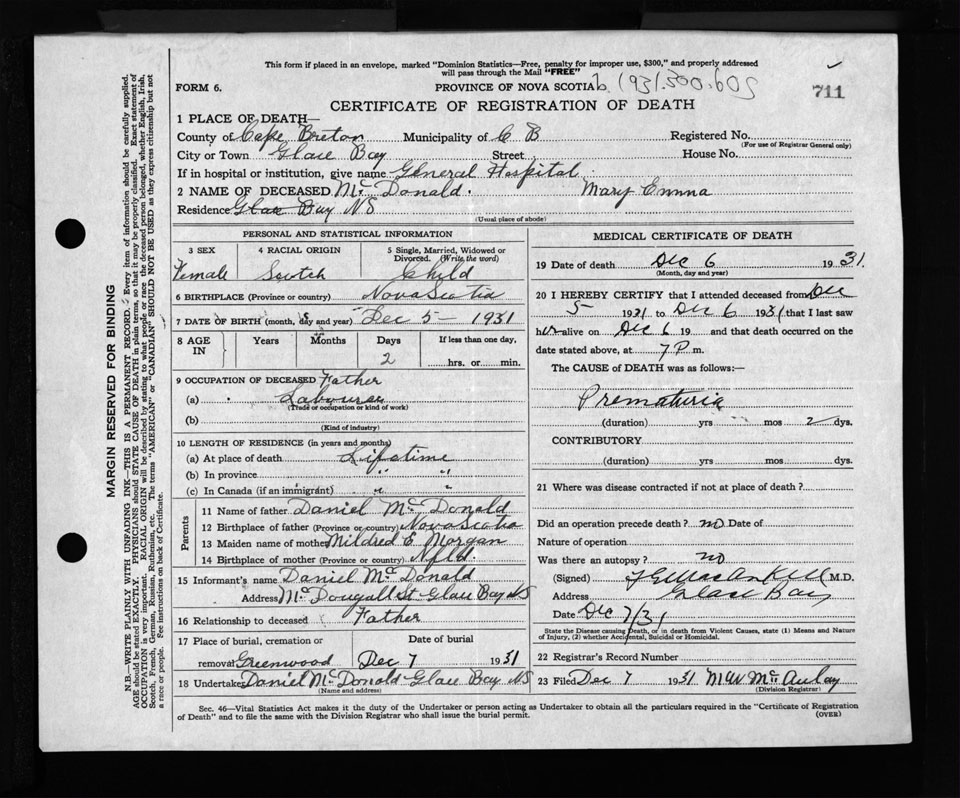 This form if placed in an envelope, marked "Dominion Statistics—Free, penalty for improper use, $300," and properly addressed
will pass through the Mail "FREE"
FORM 6. PROVINCE OF NOVA SCOTIA 1931.500.605 711
CERTIFICATE OF REGISTRATION OF DEATH
1 PLACE OF DEATH—
County of Cape Breton Municipality of C B Registered No.
(For use of Registrar General only)
City or Town Glace Bay Street House No.
If in hospital or institution, give name General Hospital
2 NAME OF DECEASED McDonald. Mary Emma
Residence Glace Bay NS
(Usual place of abode)
PERSONAL AND STATISTICAL INFORMATION
3 SEX 4 RACIAL ORIGIN 5 Single, Married, Widowed or Divorced. (Write the word)
Female Scotch Child
6 BIRTHPLACE (Province or country) Nova Scotia
7 DATE OF BIRTH (month, day and year) Dec 5 - 1931
8 AGE IN Years Months Days If less than one day,
2 hrs. or min.
9 OCCUPATION OF DECEASED Father
(a) Labourer
(Trade or occupation or kind of work)
(b)
(Kind of industry)
10 LENGTH OF RESIDENCE (in years and months)
(a) At place of death Lifetime
(b) In province " "
(c) In Canada (if an immigrant) " "
Parents
11 Name of father Daniel McDonald
12 Birthplace of father (Province or country) Nova Scotia
13 Maiden name of mother Mildred E. Morgan
14 Birthplace of mother (Province or country) Nfld.
15 Informant's name Daniel McDonald
Address McDougall St Glace Bay NS
16 Relationship to deceased Father
17 Place of burial, cremation or Date of burial
removal Greenwood Dec 7 1931
18 Undertaker Daniel McDonald Glace Bay NS
(Name and address)
MEDICAL CERTIFICATE OF DEATH
19 Date of death Dec 6 1931.
(Month, day and year)
20 I HEREBY CERTIFY that I attended deceased from Dec
5 1931 to Dec 6 1931 that I last saw
her alive on Dec 6 19 and that death occurred on the
date stated above, at 7 P m.
The CAUSE of DEATH was as follows:—
Prematuria
(duration) yrs mos 2 dys.
CONTRIBUTORY
(duration) yrs. mos. dys.
21 Where was disease contracted if not at place of death?
Did an operation precede death? no Date of
Nature of operation
Was there an autopsy? no
(Signed) M.D.
Address Glace Bay
Date Dec 7/31
State the Disease causing Death, or in death from Violent Causes, state (1) Means and Nature
of Injury, (2) whether Accidental, Suicidal or Homicidal.
22 Registrar's Record Number
23 Filed Dec 7 1931 M W McAulay
(Division Registrar)
Sec. 46—Vital Statistics Act makes it the duty of the Undertaker or person acting as Undertaker to obtain all the particulars required in the "Certificate of Registration
of Death" and to file the same with the Division Registrar who shall issue the burial permit. (OVER)
MARGIN RESERVED FOR BINDING
N.B.—WRITE PLAINLY WITH UNFADING INK—THIS IS A PERMANENT RECORD. Every item of information should be carefully supplied.
AGE should be stated EXACTLY. PHYSICIANS should STATE CAUSE OF DEATH in plain terms, so that it may be properly classified. Exact statement of
OCCUPATION is very important. RACIAL ORIGIN will be described by stating to what people or race the deceased person belonged, whether English, Irish,
Scotch, French, German, Russian, Ruthenian, etc. The terms "AMERICAN" or "CANADIAN" SHOULD NOT BE USED as they express citizenship but not
a race or people. See instructions on back of Certificate.